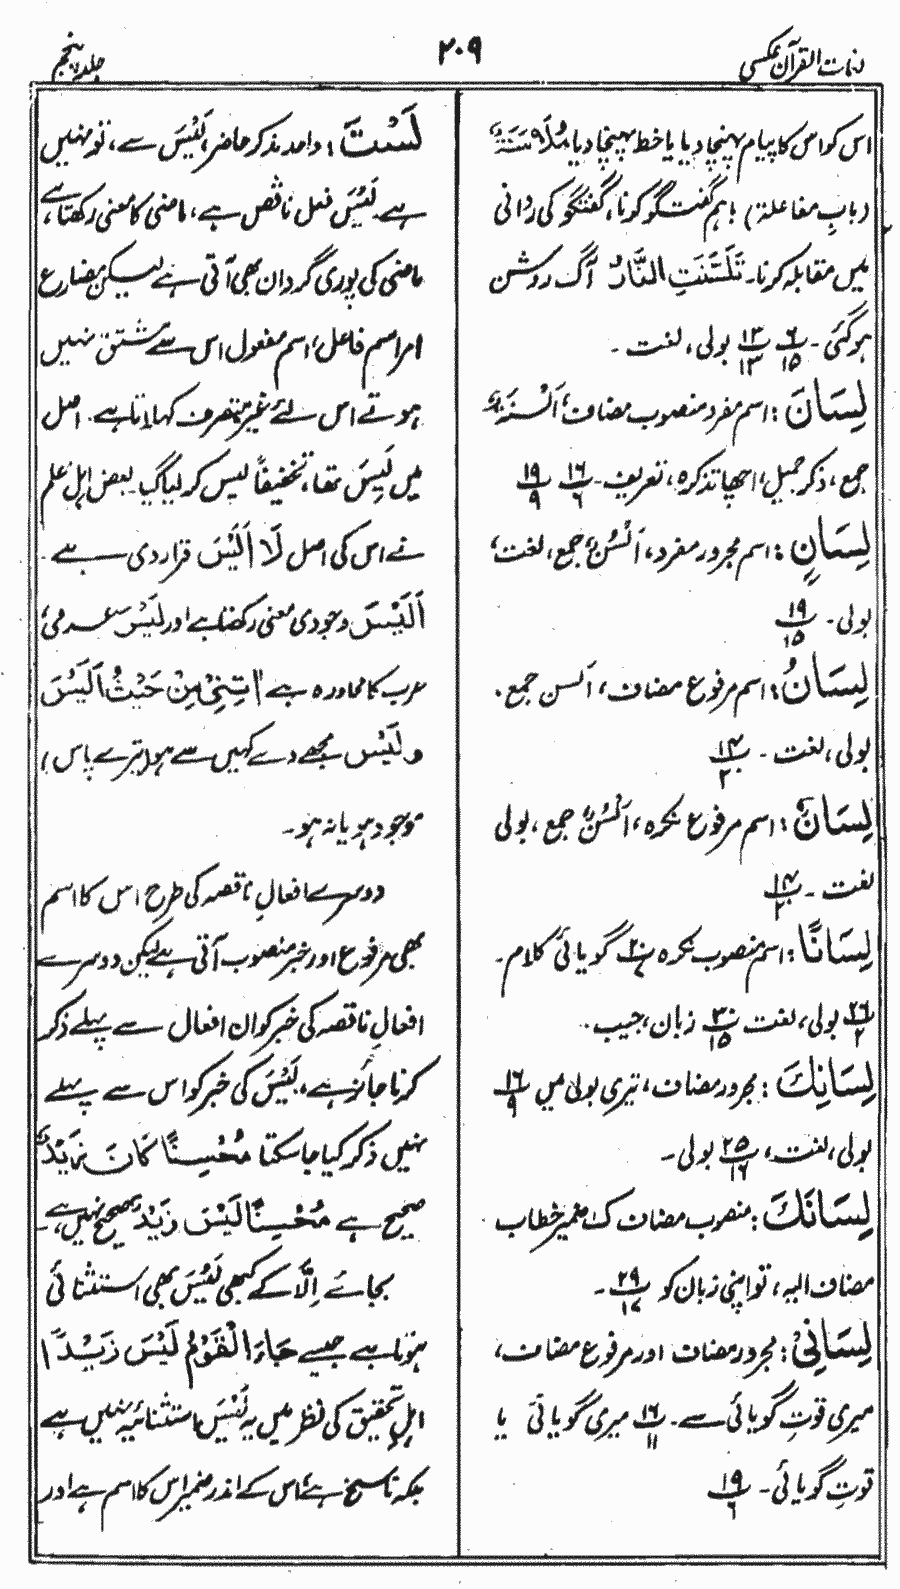 لغات القرآن عکسی
۲۰۹
جلد پنجم
اس کو اس کا پیام پہنچا دیا یا خط پہنچا دیا مُلَاسَنَۃٌ
(باب مفاعلۃ) باہم گفت گو کرنا، گفتگو کی روانی
میں مقابلہ کرنا۔ تَلَسَّنَتِ النَّارُ آگ روشن
ہوگئی۔ ۶/۱۵ ۱۳/۱۳ بولی، لغت۔
لِسَانَ: اسم مفرد منصوب مضاف، اَلْسِنَۃٌ
جمع، ذکر جمیل، اچھا تذکرہ، تعریف۔ ۱۶/۶ ۱۹/۹
لِسَانٍ: اسم مجرور مفرد، اَلْسُنٌ جمع، لغت،
بولی۔ ۱۹/۱۵
لِسَانُ: اسم مرفوع مضاف، السن جمع۔
بولی، لغت۔ ۱۴/۲۰
لِسَانٌ: اسم مرفوع نکرہ، اَلْسُنٌ جمع، بولی
لغت۔ ۱۴/۲۰
لِسَانًا: اسم منصوب نکرہ ۲۰/۷ گویائی کلام۔
۲۶/۲ بولی، لغت ۳۰/۱۵ زبان، جیب۔
لِسَانِكَ: مجرور مضاف، تیری بولی میں ۱۶/۹
بولی، لغت، ۲۵/۱۶ بولی۔
لِسَانَكَ: منصوب مضاف ک ضمیر خطاب
مضاف الیہ، تو اپنی زبان کو ۲۹/۱۷۔
لِسَانِیْ: مجرور مضاف اور مرفوع مضاف،
میری قوتِ گویائی سے۔ ۱۶/۱۱ میری گویائی یا
قوتِ گویائی۔ ۱۹/۶
لَسْتَ: واحد مذکر حاضر، لَیْسَ سے، تو نہیں
ہے۔ لَیْسَ فعل ناقص ہے، ماضی کا معنی رکھتا ہے،
ماضی کی پوری گردان بھی آتی ہے لیکن مضارع
امر اسم فاعل، اسم مفعول اس سے مشتق نہیں
ہوتے اس لئے غیر متصرف کہلاتا ہے۔ اصل
میں لَیِسَ تھا، تخفیفاً لیس کر لیا گیا۔ بعض اہل علم
نے اس کی اصل لَا اَلَیْسَ قرار دی ہے۔
اَلَیْسَ وجودی معنی رکھتا ہے اور لَیْسَ عدمی،
عرب کا محاورہ ہے اِتِنِیْ مِنْ حَیْثُ اَلَیْسَ
و لَیْسَ مجھے دے کہیں سے ہو (تیرے پاس)
موجود ہو یا نہ ہو۔
دوسرے افعالِ ناقصہ کی طرح اس کا اسم
بھی مرفوع اور خبر منصوب آتی ہے لیکن دوسرے
افعالِ ناقصہ کی خبر کو ان افعال سے پہلے ذکر
کرنا جائز ہے، لَیْسَ کی خبر کو اس سے پہلے
نہیں ذکر کیا جا سکتا مُحْسِنًا كَانَ زَيْدٌ
صحیح ہے مُحْسِنًا لَيْسَ زَيْدٌ صحیح نہیں ہے،
بجائے اِلَّا کے کبھی لَیْسَ بھی استثنائی
ہوتا ہے جیسے جَاءَ الْقَوْمُ لَيْسَ زَيْدًا
اہلِ تحقیق کی نظر میں یہ لَیْسَ استثنائیہ نہیں ہے
بلکہ ناسخ ہے، اس کے اندر ضمیر اس کا اسم ہے اور